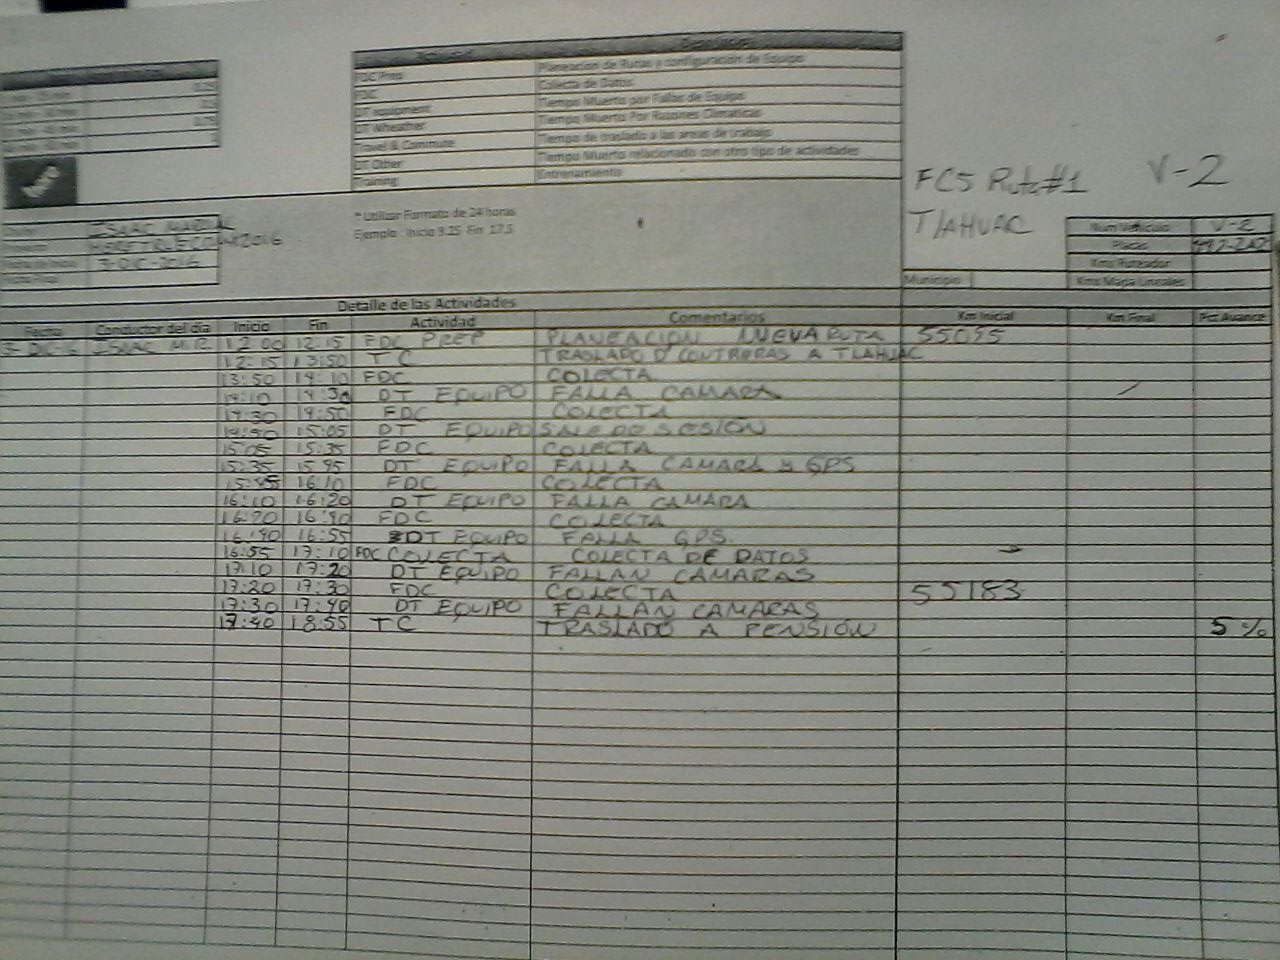 FDC Prep Planeacion de Rutas y configuracion de Equipo
FDC Colecta de Datos
DT equipment Tiempo Muerto por Fallas de Equipo
DT Wheather Tiempo Muerto Por Razones Climaticas
Travel & Commute Tiempo de traslado a las areas de trabajo
DT Other Tiempo Muerto relacionado con otro tipo de actividades
Training Entrenamiento
FCS Ruta #1 V-2
TlAHUAC
* Utilizar Formato de 24 horas
Ejemplo Inicio 9.25 Fin 17.5
ISAAC
3-DIC-2016
Num Vehiculo V-2
Placas
Kms Ruteador
Municipio Kms Mapa Lineales
Detalle de las Actividades
Fecha Conductor del dia Inicio Fin Actividad Comentarios Km Inicial Km Final Pct Avance
3-DIC-16 ISAAC M.R. 12:00 12:15 FDC PREP PLANEACION NUEVA RUTA 55055
12:15 13:50 TC TRASLADO D' CONTRERAS A TLAHUAC
13:50 14:10 FDC COLECTA
14:10 14:30 DT EQUIPO FALLA CAMARA
14:30 14:50 FDC COLECTA
14:50 15:05 DT EQUIPO SESIÓN
15:05 15:35 FDC COLECTA
15:35 15:45 DT EQUIPO FALLA CAMARA y GPS
15:45 16:10 FDC COLECTA
16:10 16:20 DT EQUIPO FALLA CAMARA
16:20 16:40 FDC COLECTA
16:40 16:55 DT EQUIPO FALLA GPS.
16:55 17:10 FDC COLECTA COLECTA DE DATOS
17:10 17:20 DT EQUIPO FALLAN CAMARAS
17:20 17:30 FDC COLECTA 55183
17:30 17:40 DT EQUIPO FALLAN CAMARAS
17:40 18:55 TC TRASLADO A PENSIÓN 5 %